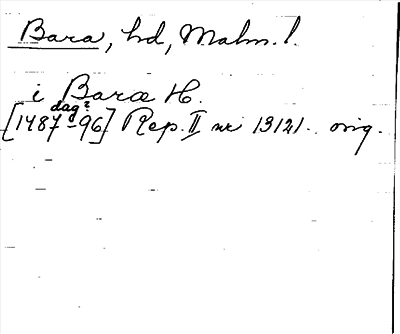 Bara, hd, Malm. l.
i Baræ H.
dag?
[1487-96] Rep. II nr 13121. orig.